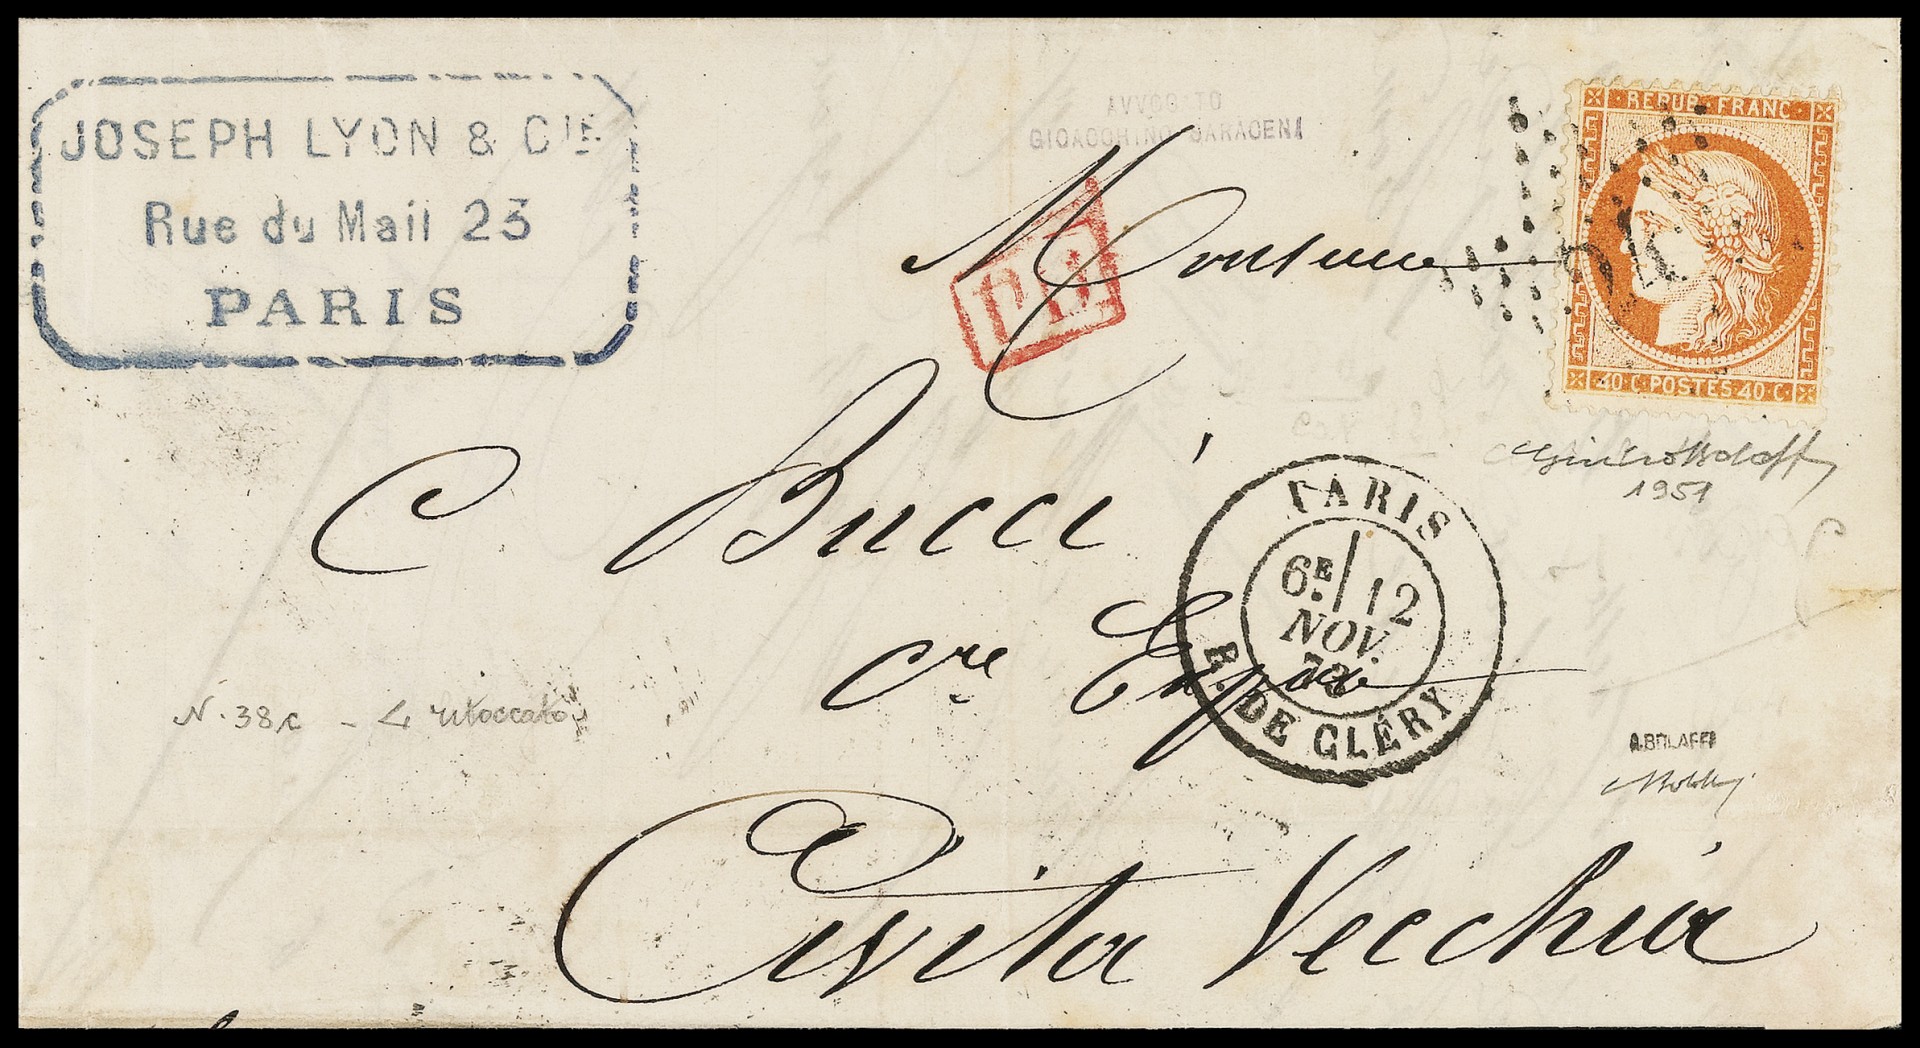 JOSEPH LYON & CIE
Rue du Mail 23
PARIS
AVVOCATO
GIOACCHINO SARACENI
P.D.
REPUB. FRANC.
40 C POSTES 40 C
Monsieur
C Bucci
PARIS
6E 12
NOV.
73
R. DE CLÉRY
Civita Vecchia
1951
N. 38c - 4 ritoccato
A.BOLAFFI